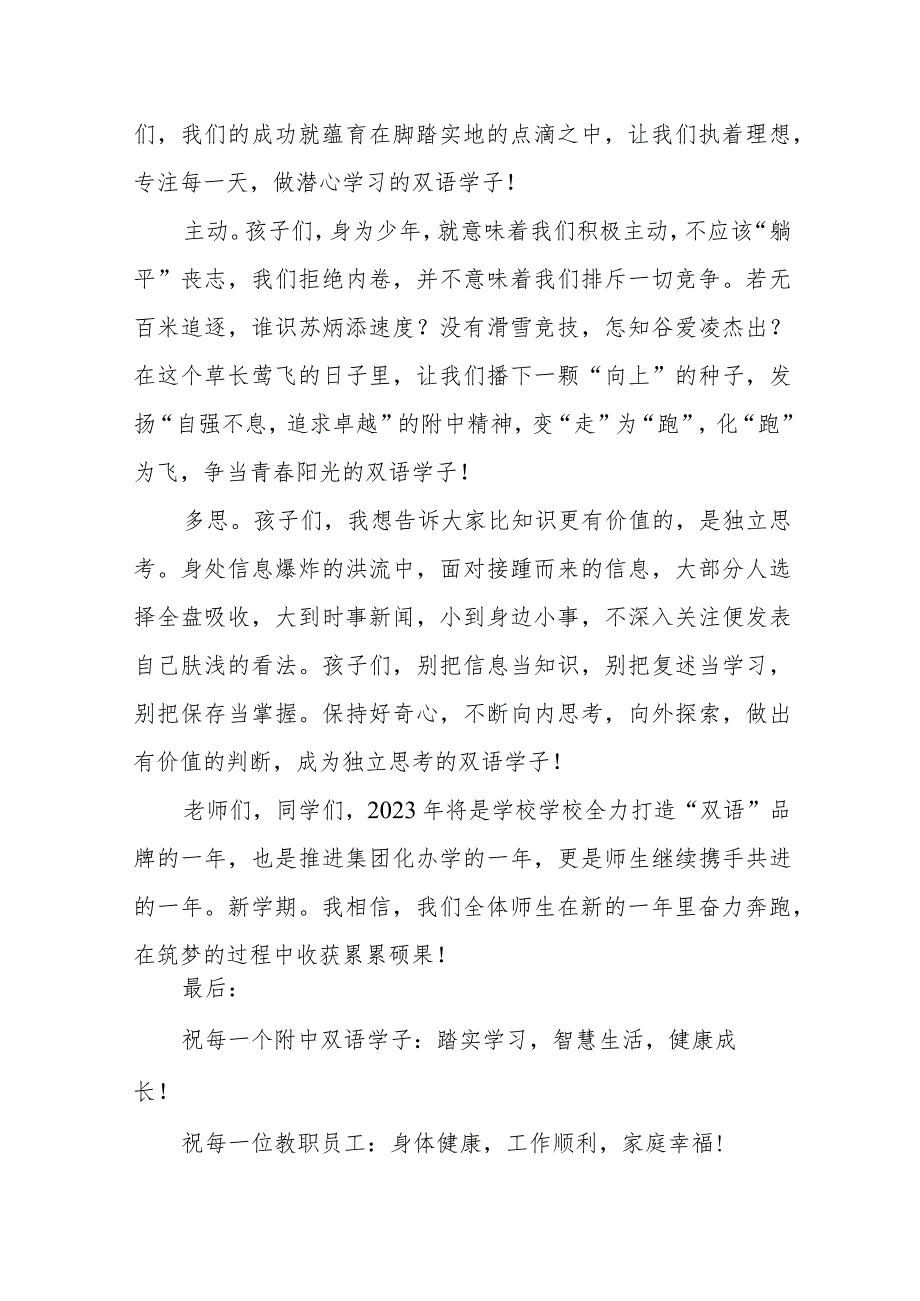 们，我们的成功就蕴育在脚踏实地的点滴之中，让我们执着理想，
专注每一天，做潜心学习的双语学子！
主动。孩子们，身为少年，就意味着我们积极主动，不应该“躺
平”丧志，我们拒绝内卷，并不意味着我们排斥一切竞争。若无
百米追逐，谁识苏炳添速度？没有滑雪竞技，怎知谷爱凌杰出？
在这个草长莺飞的日子里，让我们播下一颗“向上”的种子，发
扬“自强不息，追求卓越”的附中精神，变“走”为“跑”，化“跑”
为飞，争当青春阳光的双语学子！
多思。孩子们，我想告诉大家比知识更有价值的，是独立思
考。身处信息爆炸的洪流中，面对接踵而来的信息，大部分人选
择全盘吸收，大到时事新闻，小到身边小事，不深入关注便发表
自己肤浅的看法。孩子们，别把信息当知识，别把复述当学习，
别把保存当掌握。保持好奇心，不断向内思考，向外探索，做出
有价值的判断，成为独立思考的双语学子！
老师们，同学们，2023年将是学校学校全力打造“双语”品
牌的一年，也是推进集团化办学的一年，更是师生继续携手共进
的一年。新学期。我相信，我们全体师生在新的一年里奋力奔跑，
在筑梦的过程中收获累累硕果！
最后：
祝每一个附中双语学子：踏实学习，智慧生活，健康成
长！
祝每一位教职员工：身体健康，工作顺利，家庭幸福!